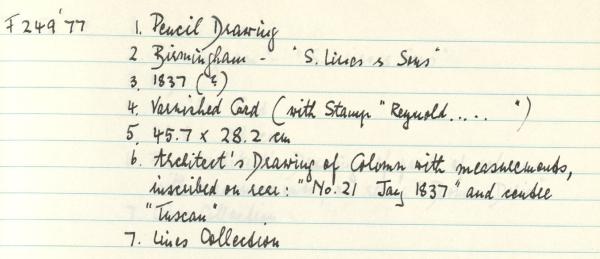 F249'77 1. Pencil Drawing
2. Birmingham - "S. Lines & Sons"
3. 1837 (&)
4. Varnished Card (with Stamp "Reynold..... ")
5. 45.7 x 28.2 cm
6. Architect's Drawing of Column with measurements,
inscribed on rear: "No. 21 Jay 1837" and centre
"Tuscan"
7. Lines Collection